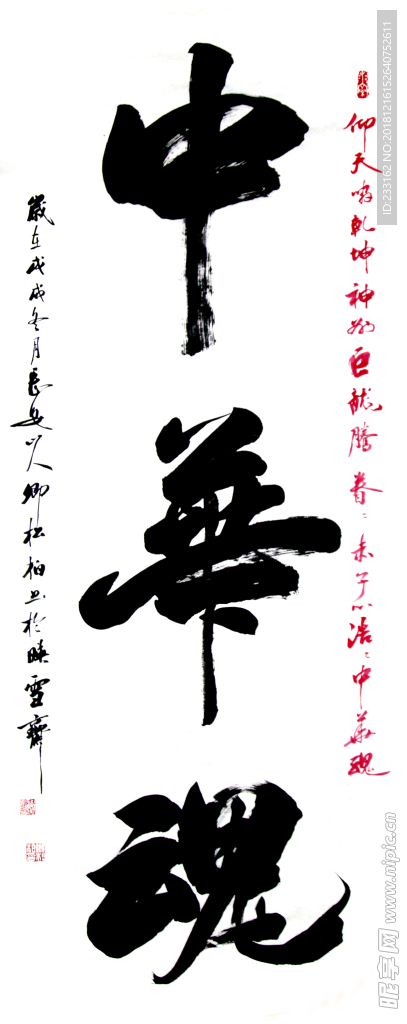 仰天嘯乾坤神州巨龍騰眷々赤子心浩々中華魂
中華魂
歲在戊戌冬月長安山人卿松柏书於暎雪齋
ID:233162 NO:20181216152640752611
昵享网 www.nipic.cn